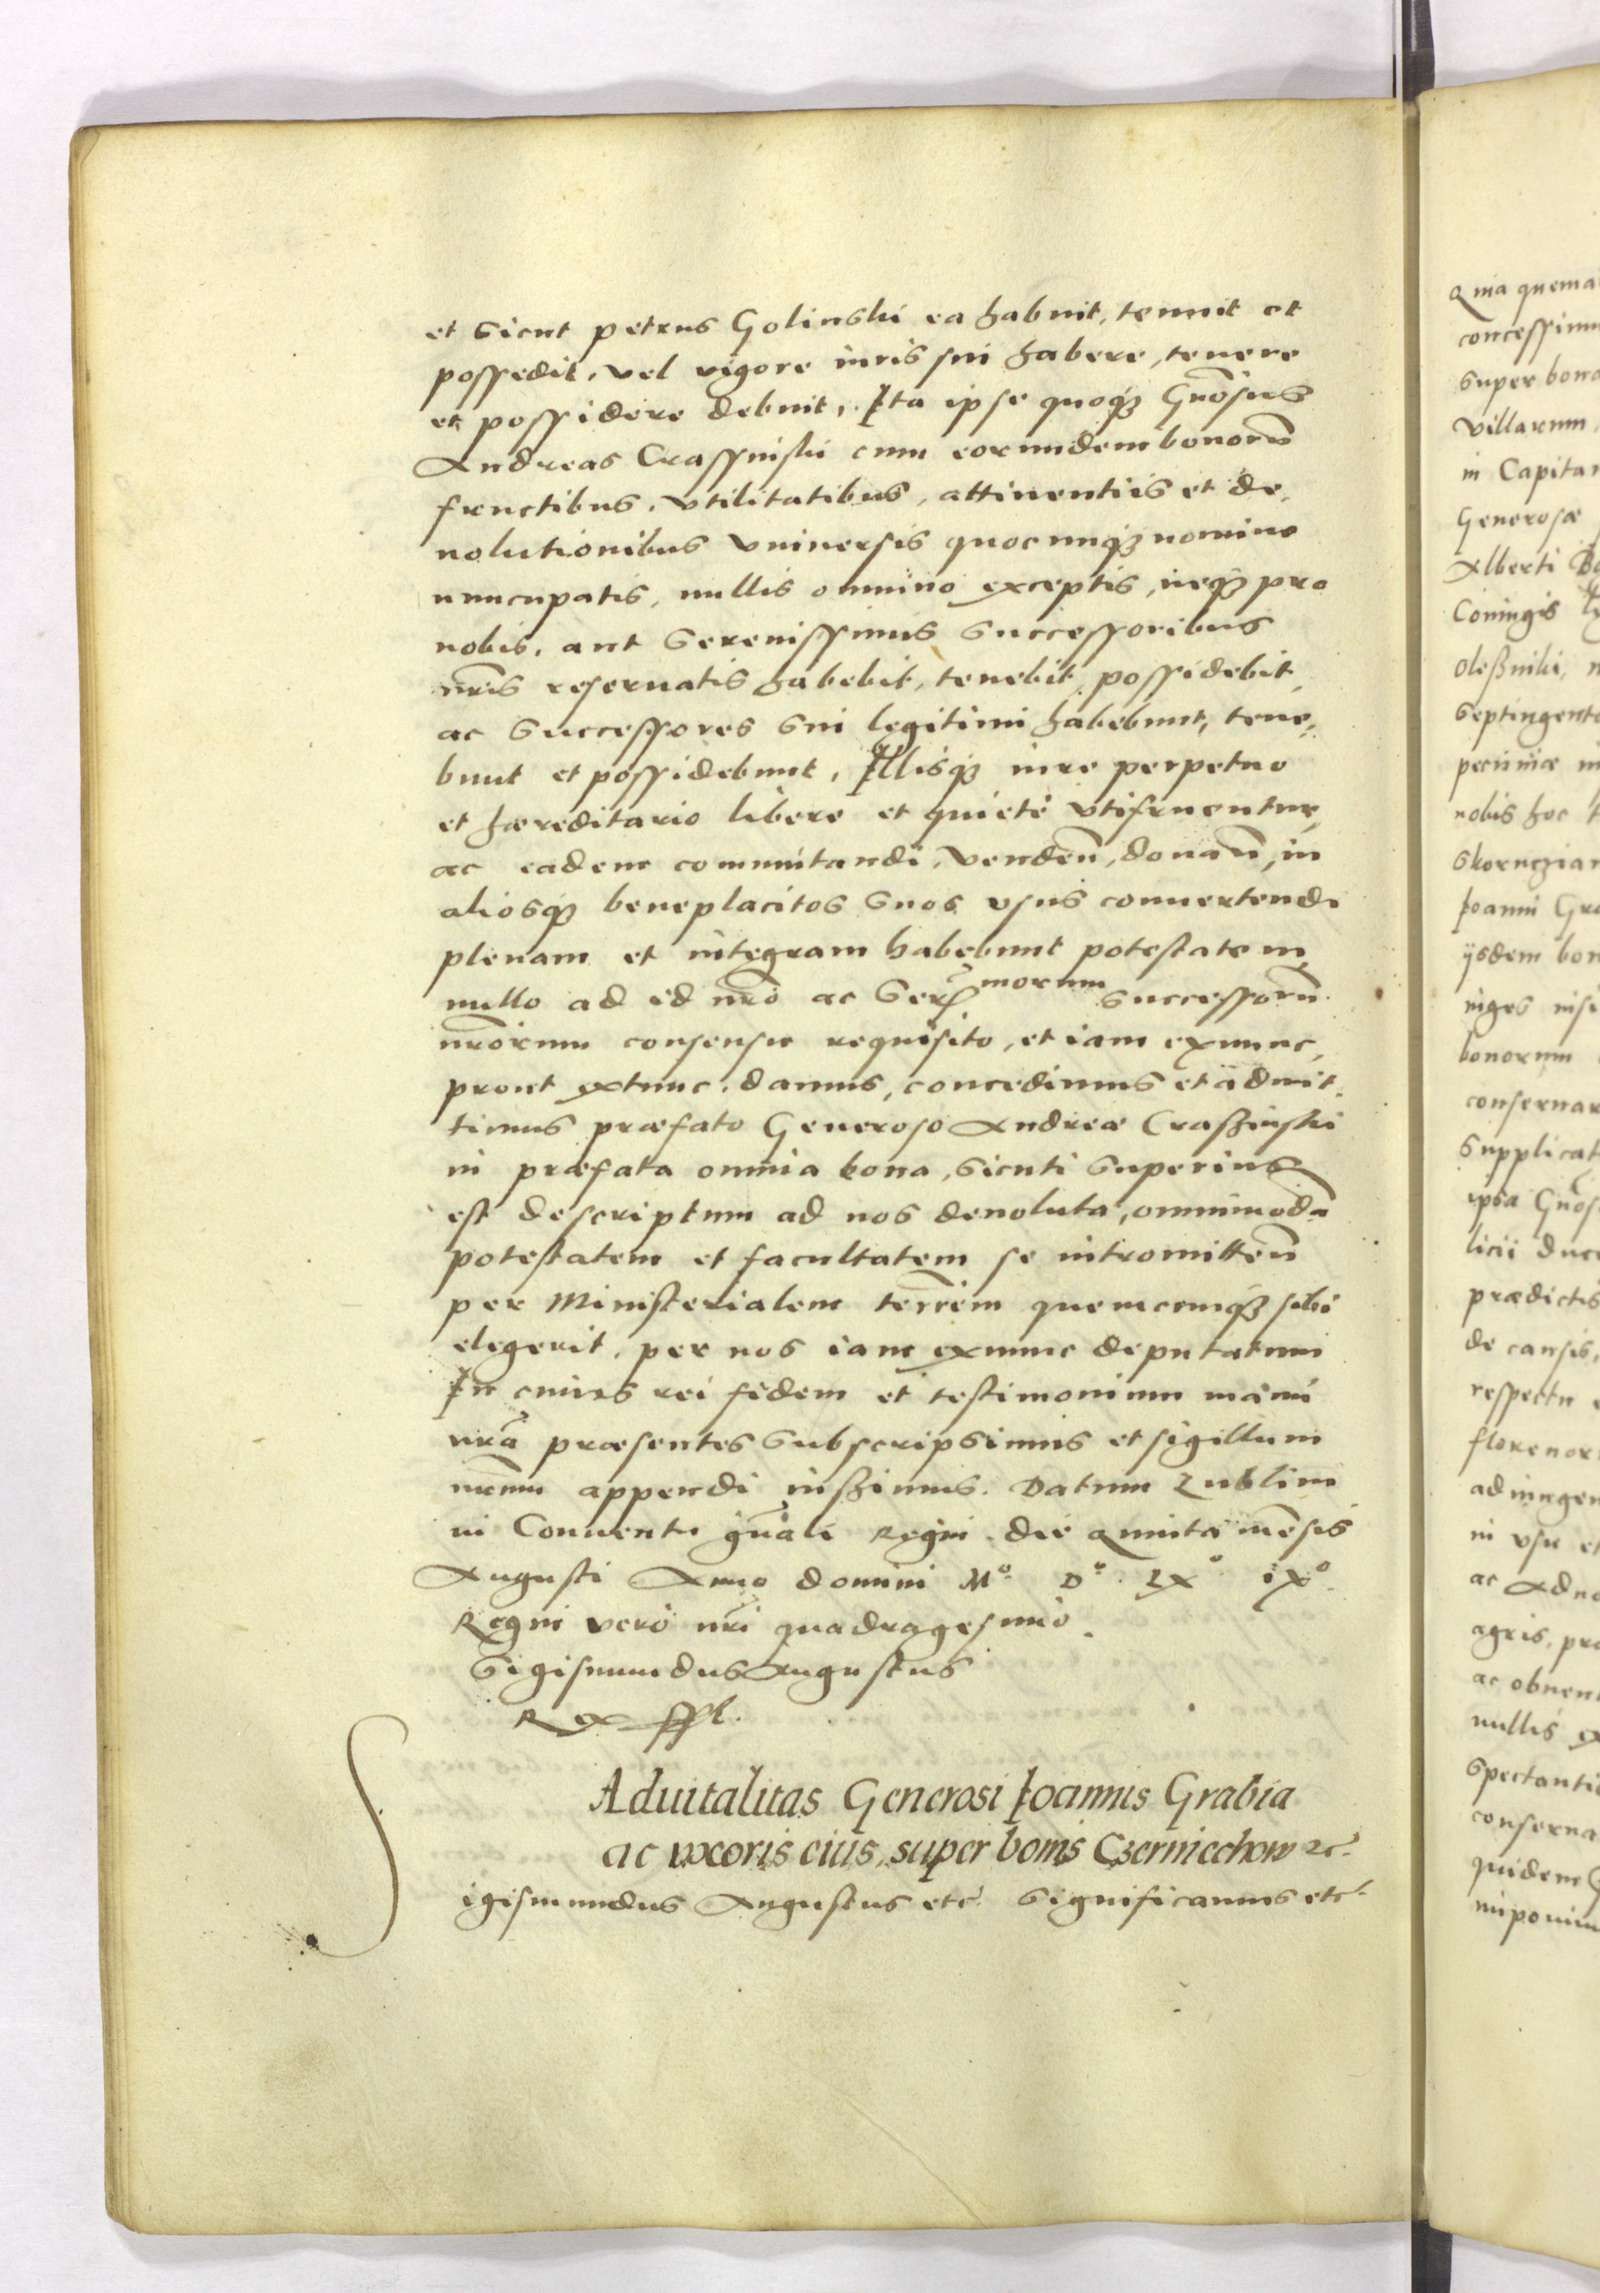 et sicut petrus Golinski ea habuit, tenuit et
possedit, vel vigore iuris sui habere, tenere
et possidere debuit, Ita ipse quoq3 Gnōsus
Andreas Crassinski cum eorundem bonorū
fructibus, vtilitatibus, attinentiis et de,
uolutionibus vniuersis quocunq3 nomine
nuncupatis, nullis omnino exceptis, neq3 pro
nobis, aut Serenissimis Successoribus
nr̄is reseruatis habebit, tenebit, possidebit,
ac Successores Sui legitimi habebunt, tene,
bunt et possidebunt, Illisq3 iure perpetuo
et hæreditario libere et quietè vtifruentur,
ac eadem commutandi, vendeñ, donañ, in
aliosq3 beneplacitos suos vsus conuertendi
plenam et integram habebunt potestatem,
nullo ad id nr̄o ac Ser morum successorū
nr̄orum consensu requisito, et iam exnunc,
prout extunc, damus, concedimus et admit,
timus præfato Generoso Andreæ Craszinski
in præfata omnia bona, sicuti superius
est descriptum ad nos deuoluta, omnimodā
potestatem et facultatem se intromitteñ
per Ministerialem terr̄em quemcunq3 sibi
elegerit, per nos iam exnunc deputatum
In cuius rei fidem et testimonium manu
nr̄a præsentes subscripsimus et sigillum
nr̄um appendi iuszimus. Datum Lublini
in Conuentu gn̄ali Regni die quinta mēsis
Augusti Anno domini Mº Dº LXº iXº
Regni vero nr̄i quadragesimo.
Sigismundus Augustus
Rex sst.
Aduitalitas Generosi Ioannis Grabia
ac vxoris eius, super bonis Czerniechow etc
Sigismundus Augustus etc Significamus etc
Quia quema
concessimu
super bona
villarum
in Capita
Generosæ
Alberti
Coniugis
Oleßniki,
septingento
pecuniæ
nobis hoc
Ioanni Gra
ijsdem bon
iuges
bonorum
conseruar
Supplicat
ipsa
licii
prædictis
de causis,
respectu
florenor
in vsu et
agris, pra
ac obuent
nullis ex
Spectantib
conserua
quidem